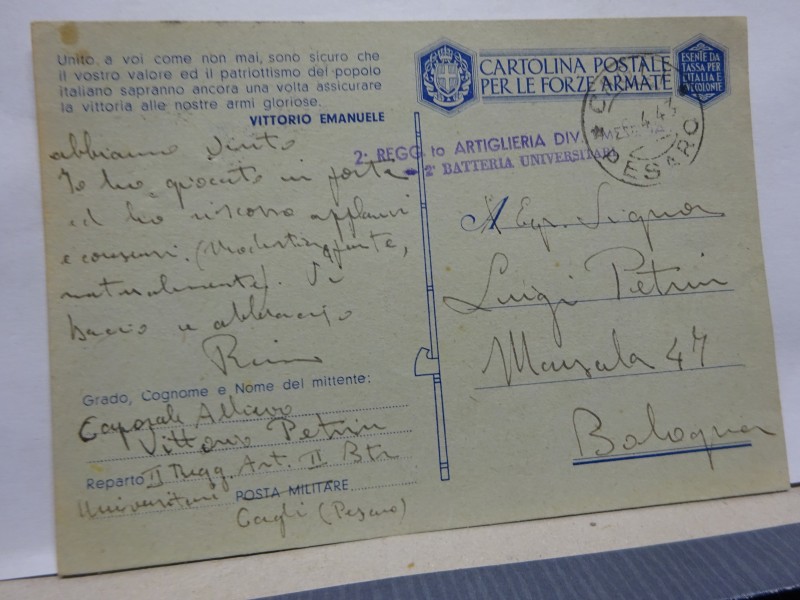 Unito a voi come non mai, sono sicuro che
il vostro valore ed il patriottismo del popolo
italiano sapranno ancora una volta assicurare
la vittoria alle nostre armi gloriose.
VITTORIO EMANUELE
abbiamo vinto
Io ho giocato in porta
ed ho riscosso applausi
e consensi. (Modestia a parte,
naturalmente). Vi
bacio e abbraccio
Grado, Cognome e Nome del mittente:
Caporale Allievo
Vittorio Petrin
Reparto II Regg. Art. II Btr
Universitari POSTA MILITARE
Cagli (Pesaro)
CARTOLINA POSTALE
PER LE FORZE ARMATE
ESENTE DA
TASSA PER
L'ITALIA E
COLONIE
PESARO
2° REGG.to ARTIGLIERIA DIV.
2ª BATTERIA UNIVERSITARI
Al Egr. Signor
Luigi Petrin
Marsala 47
Bologna